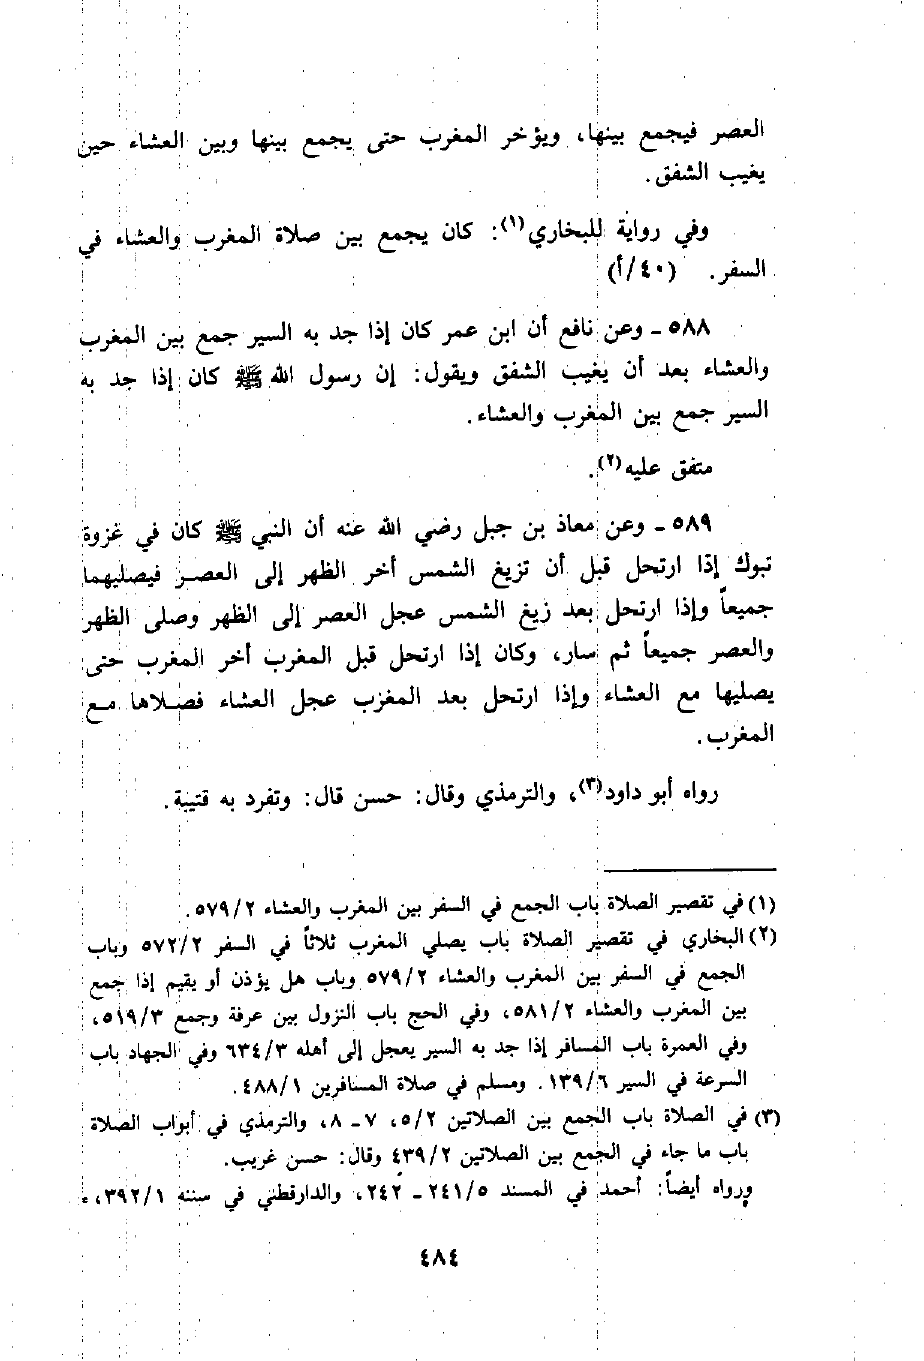 العصر فيجمع بينها، ويؤخر المغرب حتى يجمع بينها وبين العشاء حين
يغيب الشفق.
وفي رواية للبخاري(١): كان يجمع بين صلاة المغرب والعشاء في
السفر. (٤٠/أ)
٥٨٨ ـ وعن نافع أن ابن عمر كان إذا جد به السير جمع بين المغرب
والعشاء بعد أن يغيب الشفق ويقول: إن رسول الله ﷺ كان إذا جد به
السير جمع بين المغرب والعشاء.
متفق عليه(٢).
٥٨٩ ـ وعن معاذ بن جبل رضي الله عنه أن النبي ﷺ كان في غزوة
تبوك إذا ارتحل قبل أن تزيغ الشمس أخر الظهر إلى العصر فيصليهما
جميعاً وإذا ارتحل بعد زيغ الشمس عجل العصر إلى الظهر وصلى الظهر
والعصر جميعاً ثم سار، وكان إذا ارتحل قبل المغرب أخر المغرب حتى
يصليها مع العشاء وإذا ارتحل بعد المغرب عجل العشاء فصلاها مع
المغرب.
رواه أبو داود(٣)، والترمذي وقال: حسن قال: وتفرد به قتيبة.
(١) في تقصير الصلاة باب الجمع في السفر بين المغرب والعشاء ٥٧٩/٢.
(٢) البخاري في تقصير الصلاة باب يصلي المغرب ثلاثاً في السفر ٥٧٢/٢ وباب
الجمع في السفر بين المغرب والعشاء ٥٧٩/٢ وباب هل يؤذن أو يقيم إذا جمع
بين المغرب والعشاء ٥٨١/٢، وفي الحج باب النزول بين عرفة وجمع ٥١٩/٣،
وفي العمرة باب المسافر إذا جد به السير يعجل إلى أهله ٦٣٤/٣ وفي الجهاد باب
السرعة في السير ١٣٩/٦. ومسلم في صلاة المسافرين ٤٨٨/١.
(٣) في الصلاة باب الجمع بين الصلاتين ٥/٢، ٧ـ ٨، والترمذي في أبواب الصلاة
باب ما جاء في الجمع بين الصلاتين ٤٣٩/٢ وقال: حسن غريب.
ورواه أيضاً: أحمد في المسند ٢٤١/٥ ـ ٢٤٢، والدارقطني في سننه ٣٩٢/١، =
٤٨٤